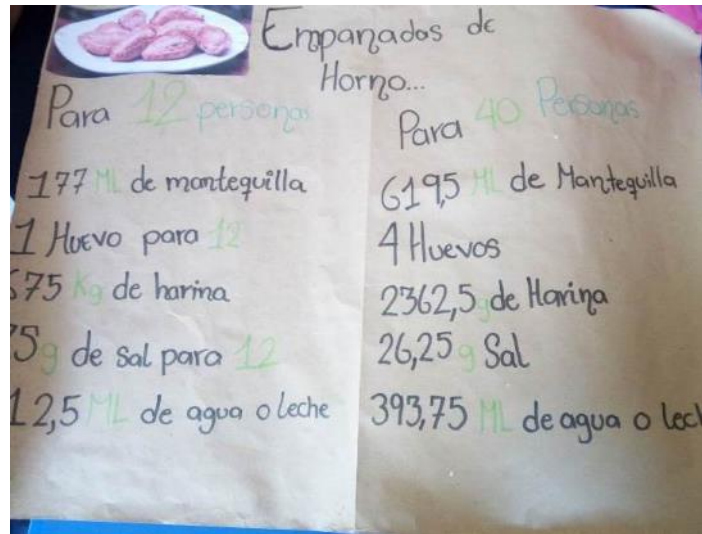 Empanadas de
Horno...
Para 12 personas
177 ML de mantequilla
1 Huevo para 12
675 Kg de harina
5g de sal para 12
12,5 ML de agua o leche
Para 40 Personas
619,5 ML de Mantequilla
4 Huevos
2362,5 g de Harina
26,25 g Sal
393,75 ML de agua o lech